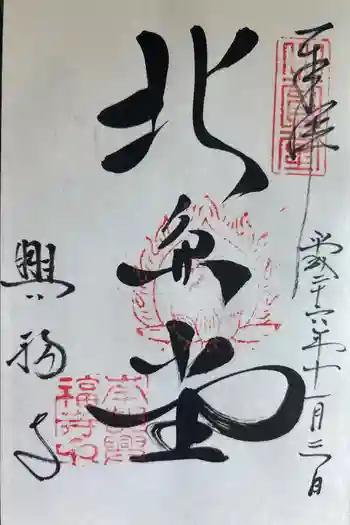 奉拝
平成二十六年十一月三日
北円堂
興福寺
南都興
福寺印